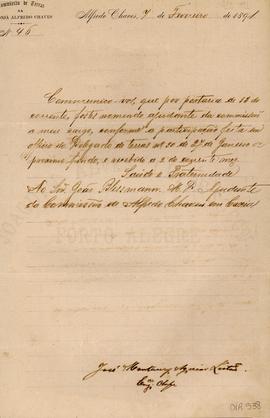 Commissão de Terras
NA
COLONIA ALFREDO CHAVES
Nº 46
Alfredo Chaves, 7 de Fevereiro de 1891
Communico-vos, que por portaria de 12 do
corrente, fostes nomeado ajudante da commissão
a meu cargo, conforme a participação feita em
officio da Delegacia de terras nº 20 de 27 de Janeiro
proximo findo, e recebido a 2 do corrente mez.
Saude e Fraternidade
Ao Snr João Blessmann M. D. Ajudante
da Commissão de Alfredo Chaves em Caxias
PORTO ALEGRE
José Montaury Leitão
Engº Chefe
DIR 938